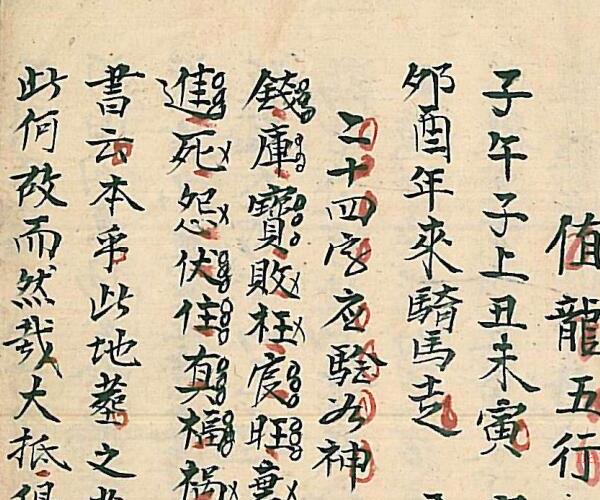 值龍五行
子午子上丑未寅
卯酉年來騎馬走
二十四字应驗如神
錢庫寶敗枉官旺
進死怨伏住真福禍
書云本乎此地塟之
此何故而然哉大抵